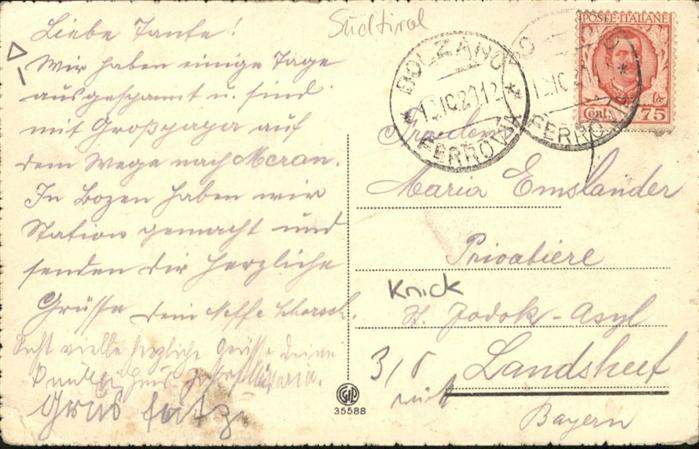 Liebe Tante!
Wir haben einige Tage
ausgespannt u. sind
mit Großpapa auf
dem Wege nach Meran.
In Bozen haben wir
Station gemacht und
senden dir herzliche
Grüsse dein Neffe
herzliche Grüsse
Südtirol
BOLZANO
FERROVIA
POSTE ITALIANE
Cent. 75
Fräulein
Maria Emslander
Privatiere
Knick
St. Jodok-Asyl
Landshut
Bayern
35588